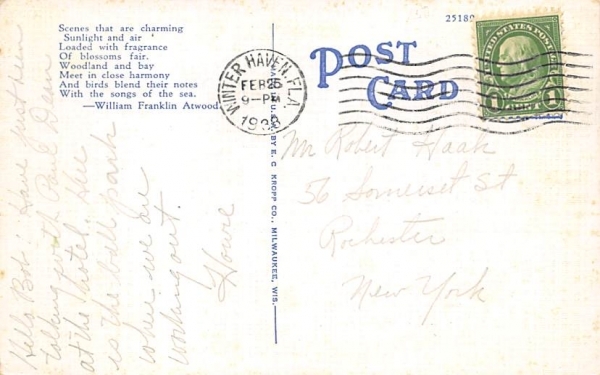 Scenes that are charming
Sunlight and air
Loaded with fragrance
Of blossoms fair.
Woodland and bay
Meet in close harmony
And birds blend their notes
With the songs of the sea.
—William Franklin Atwood
Hello Bob: Have been
talking with Paul Dean
at the hotel. Here
is the ball park
where we are
working out.
Howie
BY E. C. KROPP CO., MILWAUKEE, WIS.
POST
CARD
25189
WINTER HAVEN, FLA.
FEB 25
9-PM
UNITED STATES POSTAGE
1 CENT 1
Mr Robert Haak
56 Somerset St
Rochester
New York